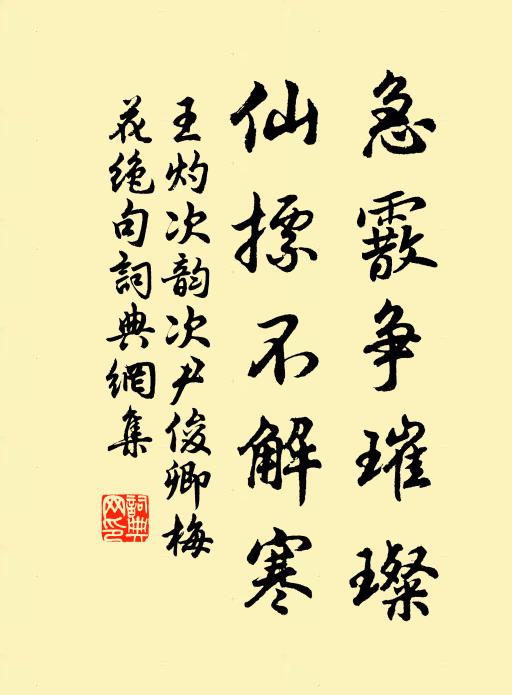 急霰争璀璨
仙摽不解寒
王灼次韵次尹俊卿梅
花绝句詞典網集
詞典
网印